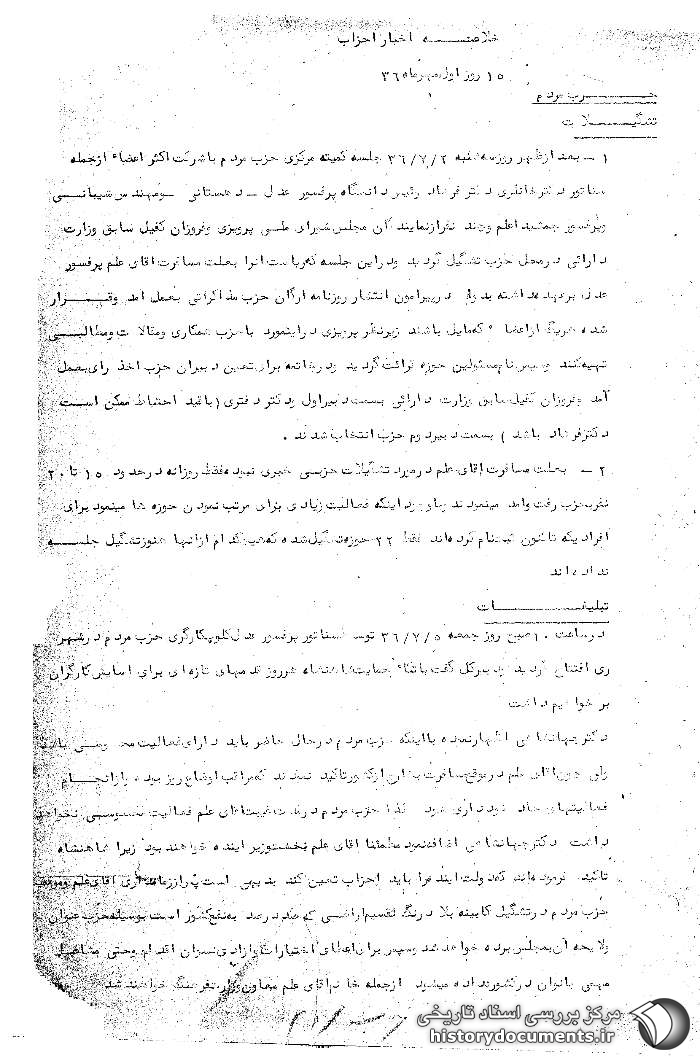 خلاصه اخبار احزاب
۱۵ روز اول مهر ماه ۳۶
حزب مردم
تشکیلات
۱ – بعد از ظهر روز سه شنبه ۳۶/۷/۲ جلسه کمیته مرکزی حزب مردم با شرکت اکثر اعضاء از جمله
سناتور دکتر خانلری دکتر فرشاد رئیس دانشگاه پرفسور عدل – دهستانی – و مهندس شیبانی
و پرفسور جمشید اعلم و چند نفر از نمایندگان مجلس شورای ملی پرویزی و فروزان کفیل سابق وزارت
دارائی در محل حزب تشکیل گردید و در این جلسه که ریاست آنرا بعلت مسافرت آقای علم پرفسور
عدل بر عهده داشته بدوا در پیرامون انتشار روزنامه ارگان حزب مذاکراتی بعمل آمد و قرار
شده هر یک از اعضاء که مایل باشند زیر نظر پرویزی در اینمورد با حزب همکاری و مقالات و مطالبی
تهیه کنند و سپس نام مسئولین حوزه قرائت گردید و در خاتمه برای تعین دبیران حزب اخذ رای بعمل
آمد و فروزان کفیل سابق وزارت دارائی بسمت دبیر اول و دکتر دفتری (با قید احتیاط ممکن است
دکتر فرشاد باشد) بسمت دبیر دوم حزب انتخاب شدند .
۲ – بعلت مسافرت آقای علم در مورد تشکیلات حزبی خبری نبوده فقط روزانه در حدود ۱۵ تا ۲۰
نفر بحزب رفت و آمد مینمودند و با وجود اینکه فعالیت زیادی برای مرتب نمودن حوزه ها مینمود برای
افرادیکه تاکنون ثبت نام کرده اند فقط ۲۲ حوزه تشکیل شده که هیچکدام از آنها هنوز تشکیل جلسه
نداده اند
تبلیغات
در ساعت ۱۰ صبح روز جمعه ۳۶/۷/۵ توسط سناتور پرفسور عدل کلوپ کارگری حزب مردم در شهر
ری افتتاح گردید و دبیر کل گفت با اتکاء بحمایت شاهنشاه هر روز قدمهای تازه ای برای آسایش کارگران
بر خواهیم داشت
دکتر جهانشاهی اظهار نموده با اینکه حزب مردم در حال حاضر باید دارای فعالیت محسوسی باشد
ولی چون آقای علم در موقع مسافرت بخارج از کشور تاکید نمودند که مراقب اوضاع ریز بوده و از انجام
فعالیتهای حاد خودداری شود لذا حزب مردم در مدت غیبت آقای علم فعالیت محسوسی نخواهد
داشت دکتر جهانشاهی اضافه نمود مطمئنا آقای علم نخست وزیر آینده خواهند بود زیرا شاهنشاه
تاکید فرموده اند که دولت آینده را باید احزاب تعین کند بدیهی است پس از زمامداری آقای علم و موفقیت
حزب مردم در تشکیل کابینه بلادرنگ تقسیم اراضی که صد در صد بنفع کشور است بوسیله حزب عنوان
و لایحه آن بمجلس برده خواهد شد و سپس برای اعطای اختیارات و آزادی نسوان اقدام و حتی مشاغل
مهمی بانوان در کشور داده میشود از جمله خانم آقای علم معاون وزارت فرهنگ خواهند شد
مرکز بررسی اسناد تاریخی
historydocuments.ir